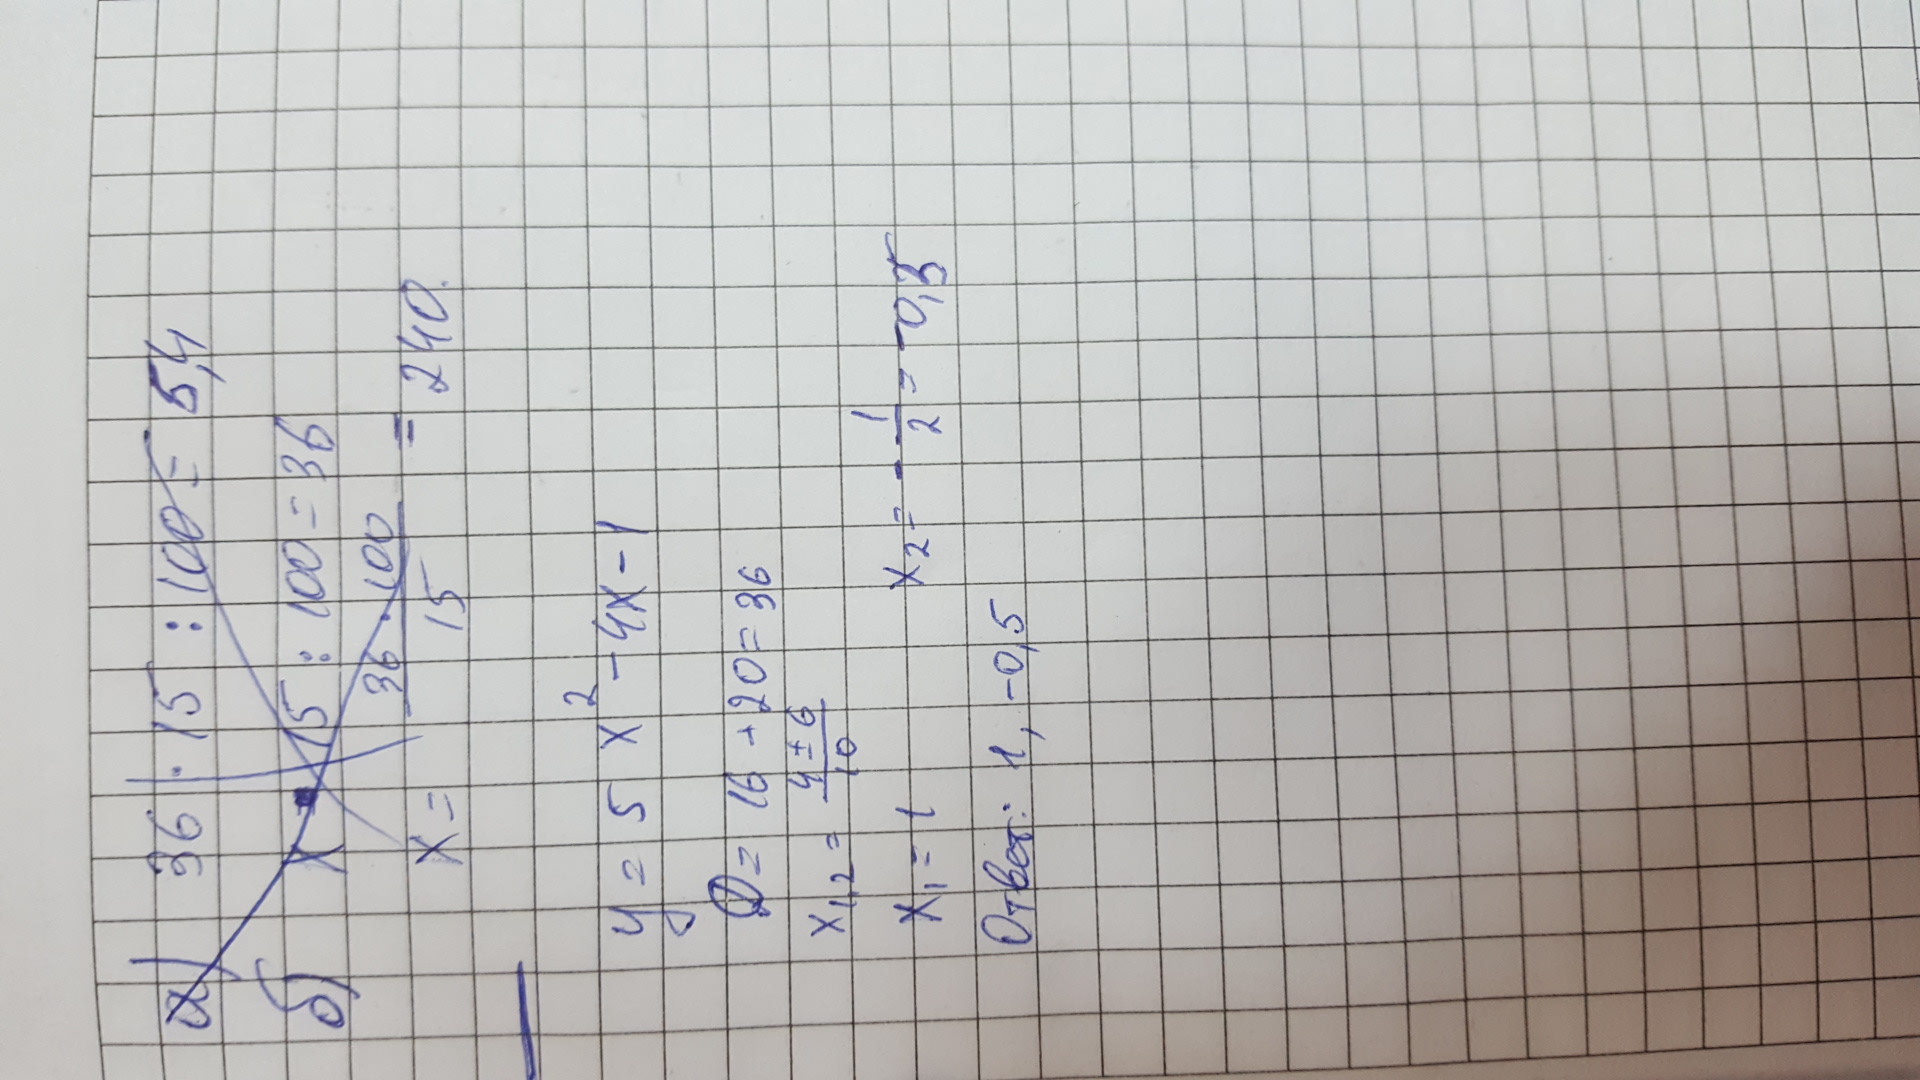 а) 36 · 15 : 100 = 5,4
б) x · 15 : 100 = 36
x = 36 · 100 / 15 = 240.
y = 5x² - 4x - 1
D = 16 + 20 = 36
x₁,₂ = 4 ± 6 / 10
x₁ = 1 x₂ = - 1/2 = -0,5
Ответ: 1, -0,5